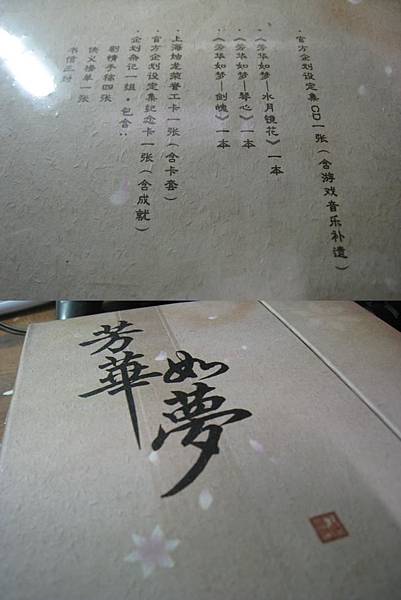 ·官方企划设定集CD一张（含游戏音乐补遗）
《芳华如梦—水月镜花》一本
《芳华如梦—琴心》一本
《芳华如梦—剑魄》一本
·上海烛龙荣誉工卡一张（含卡套）
·官方企划设定集纪念卡一张（含成就）
·企划杂记一组，包含：
剧情手稿四张
侠义榜单一张
书信三封
芳華
如夢